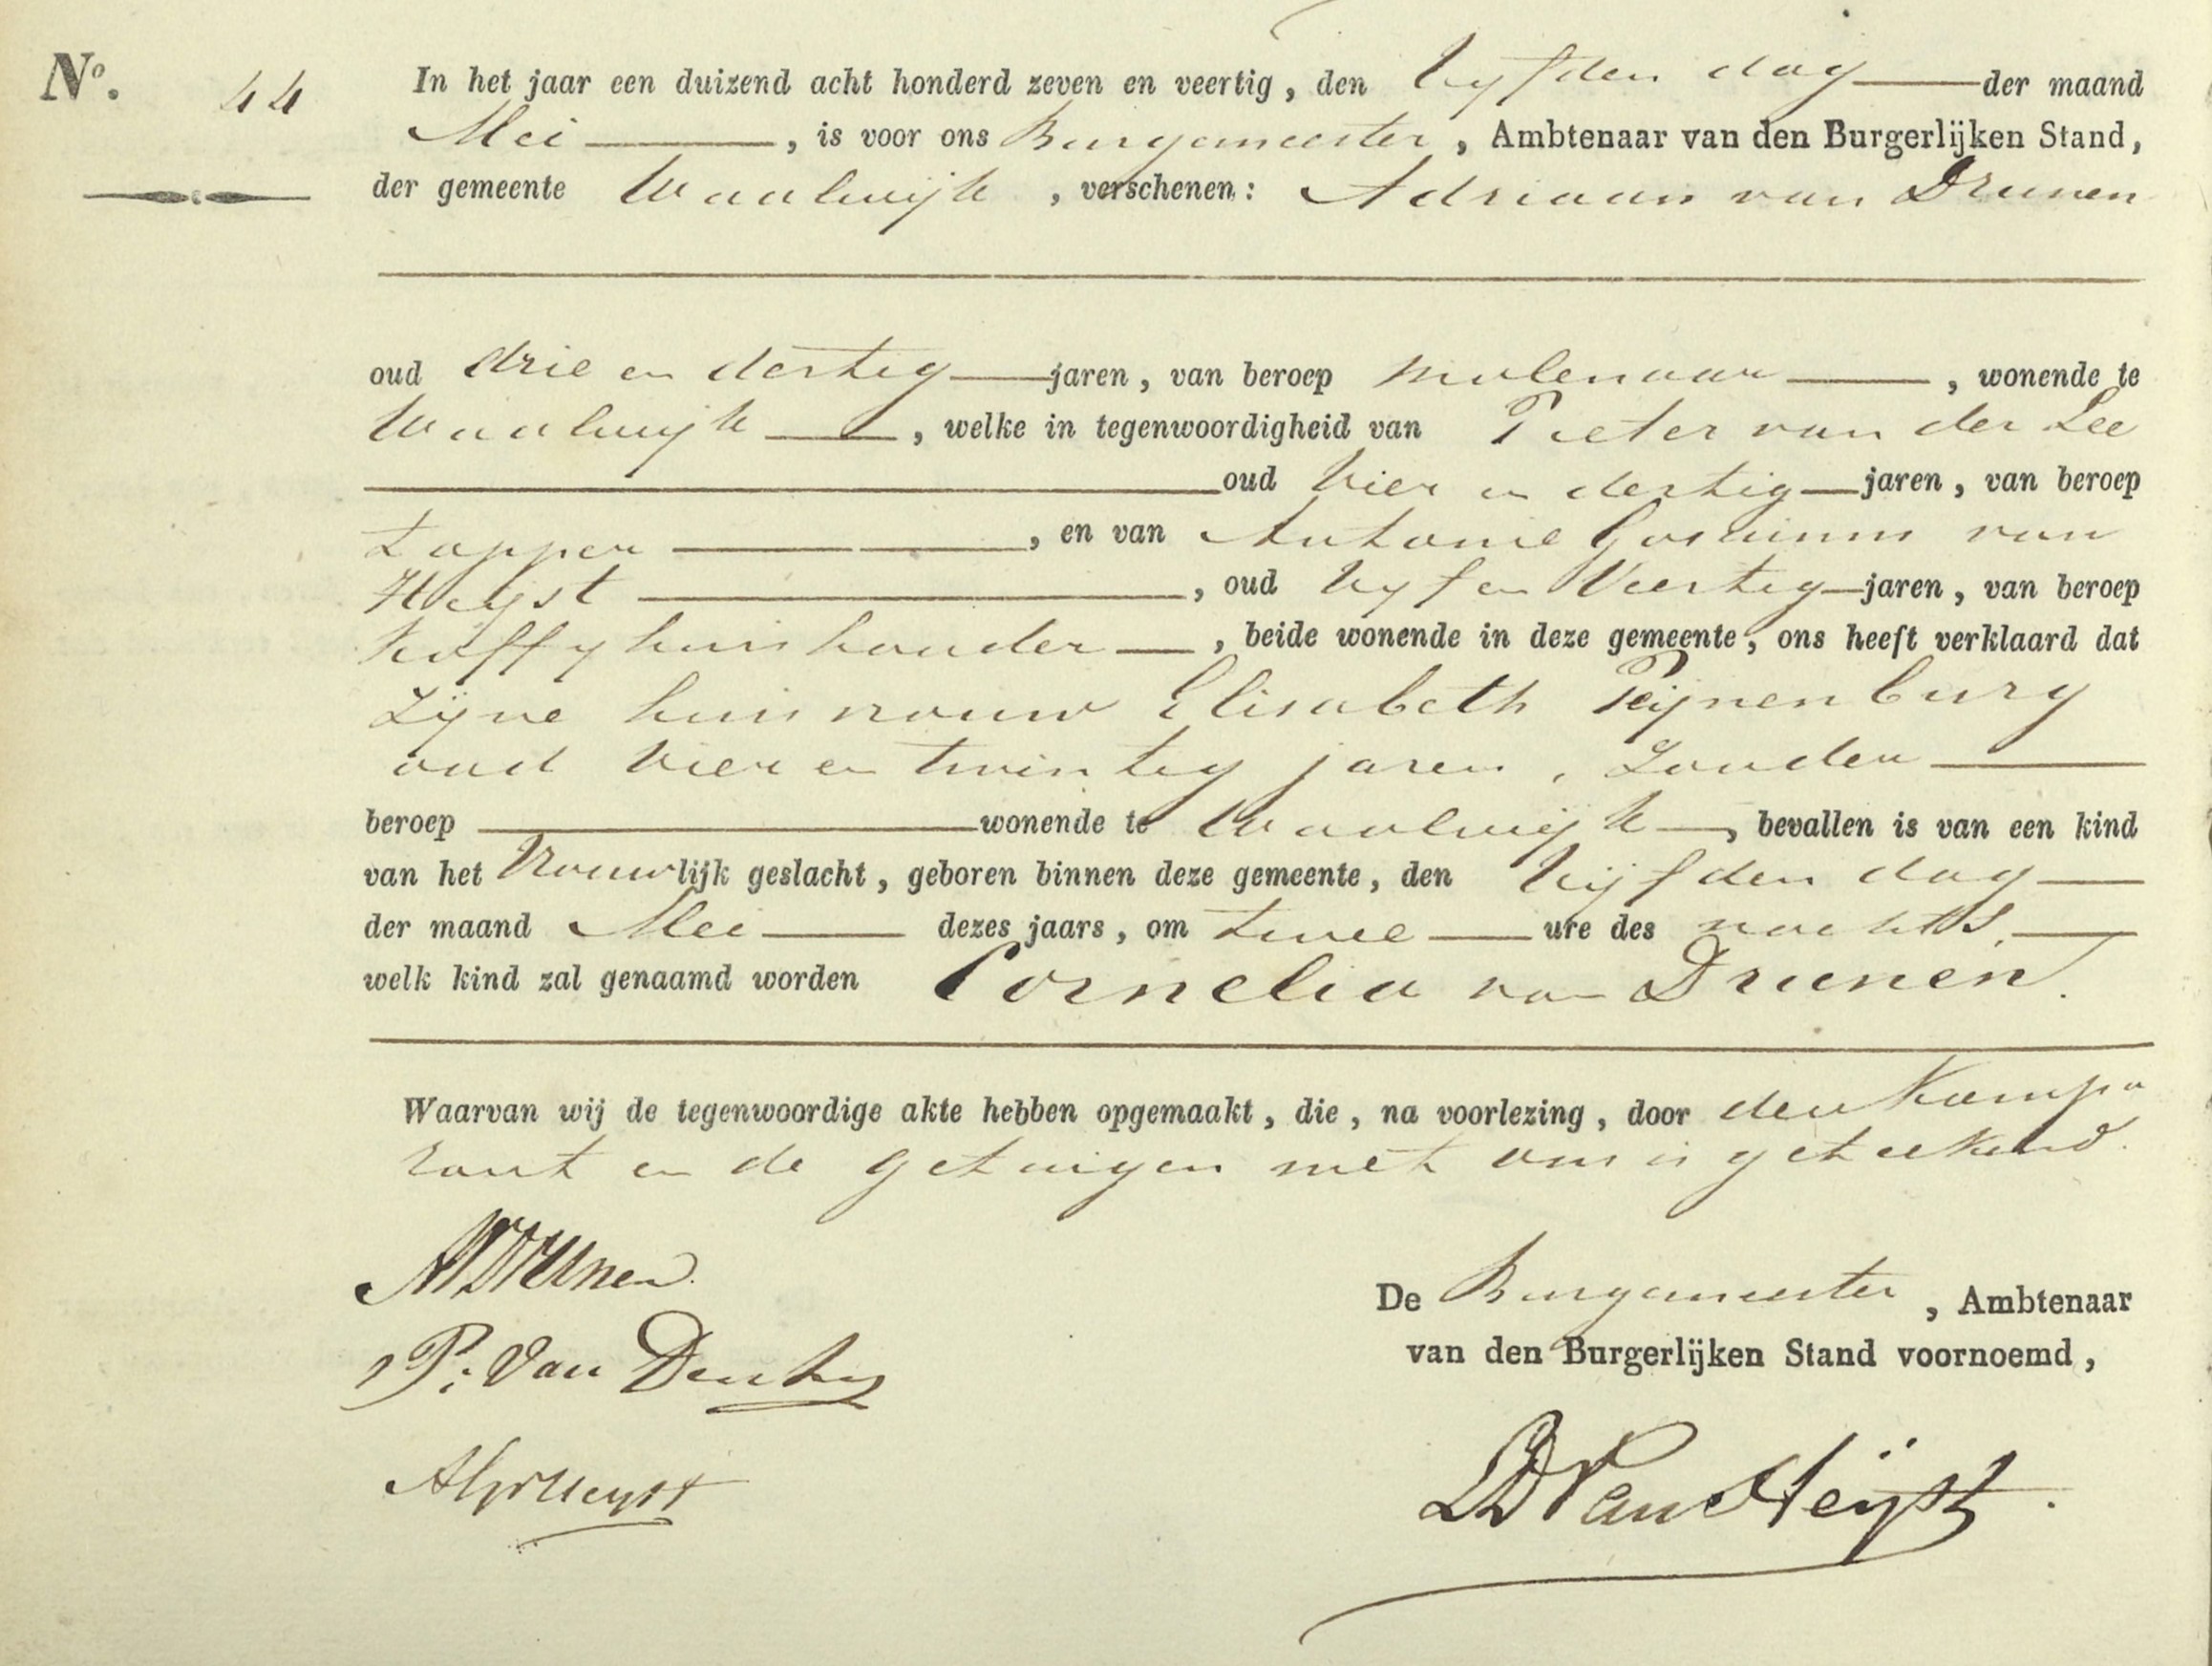 No. 44
In het jaar een duizend acht honderd zeven en veertig, den Vyfden dag der maand
Mei, is voor ons Burgemeester, Ambtenaar van den Burgerlijken Stand,
der gemeente Waalwijk, verschenen: Adriaan van Drunen
oud drie en dertig jaren, van beroep molenaar, wonende te
Waalwijk, welke in tegenwoordigheid van Pieter van der Lee
oud Vier en dertig jaren, van beroep
tapper, en van Antonie Gosuinus van
Heijst, oud Vyf en Veertig jaren, van beroep
koffyhuishouder, beide wonende in deze gemeente, ons heeft verklaard dat
Zijne huisvrouw Elisabeth Peijnenburg
oud vier en twintig jaren, Zonder
beroep wonende te Waalwijk, bevallen is van een kind
van het Vrouwlijk geslacht, geboren binnen deze gemeente, den Vijfden dag
der maand Mei dezes jaars, om twee ure des nachts,
welk kind zal genaamd worden Cornelia van Drunen.
Waarvan wij de tegenwoordige akte hebben opgemaakt, die, na voorlezing, door den Kompa
rant en de getuigen met ons is geteekend.
AVDrunen
De Burgemeester, Ambtenaar
P. Van
van den Burgerlijken Stand voornoemd,
AGvHeyst
Van Heijst